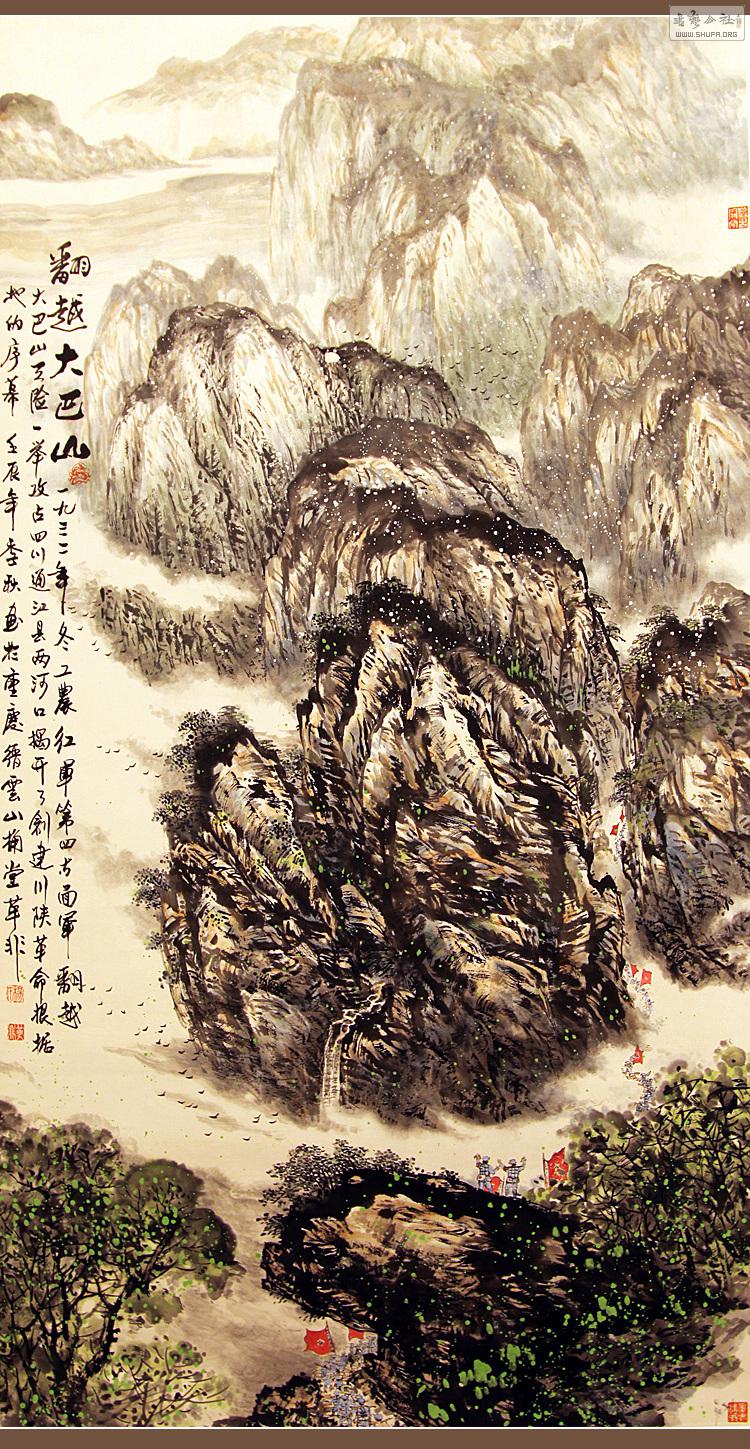 翻越大巴山
一九三二年冬工農红軍第四方面軍翻越
大巴山天险一举攻占四川通江县两河口揭开了創建川陕革命根据
地的序幕 壬辰年季秋画於重慶缙雲山楠堂草非
書藝公社
WWW.SHUFA.ORG